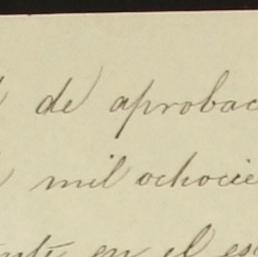 de aprobac
mil ochocie
en el es